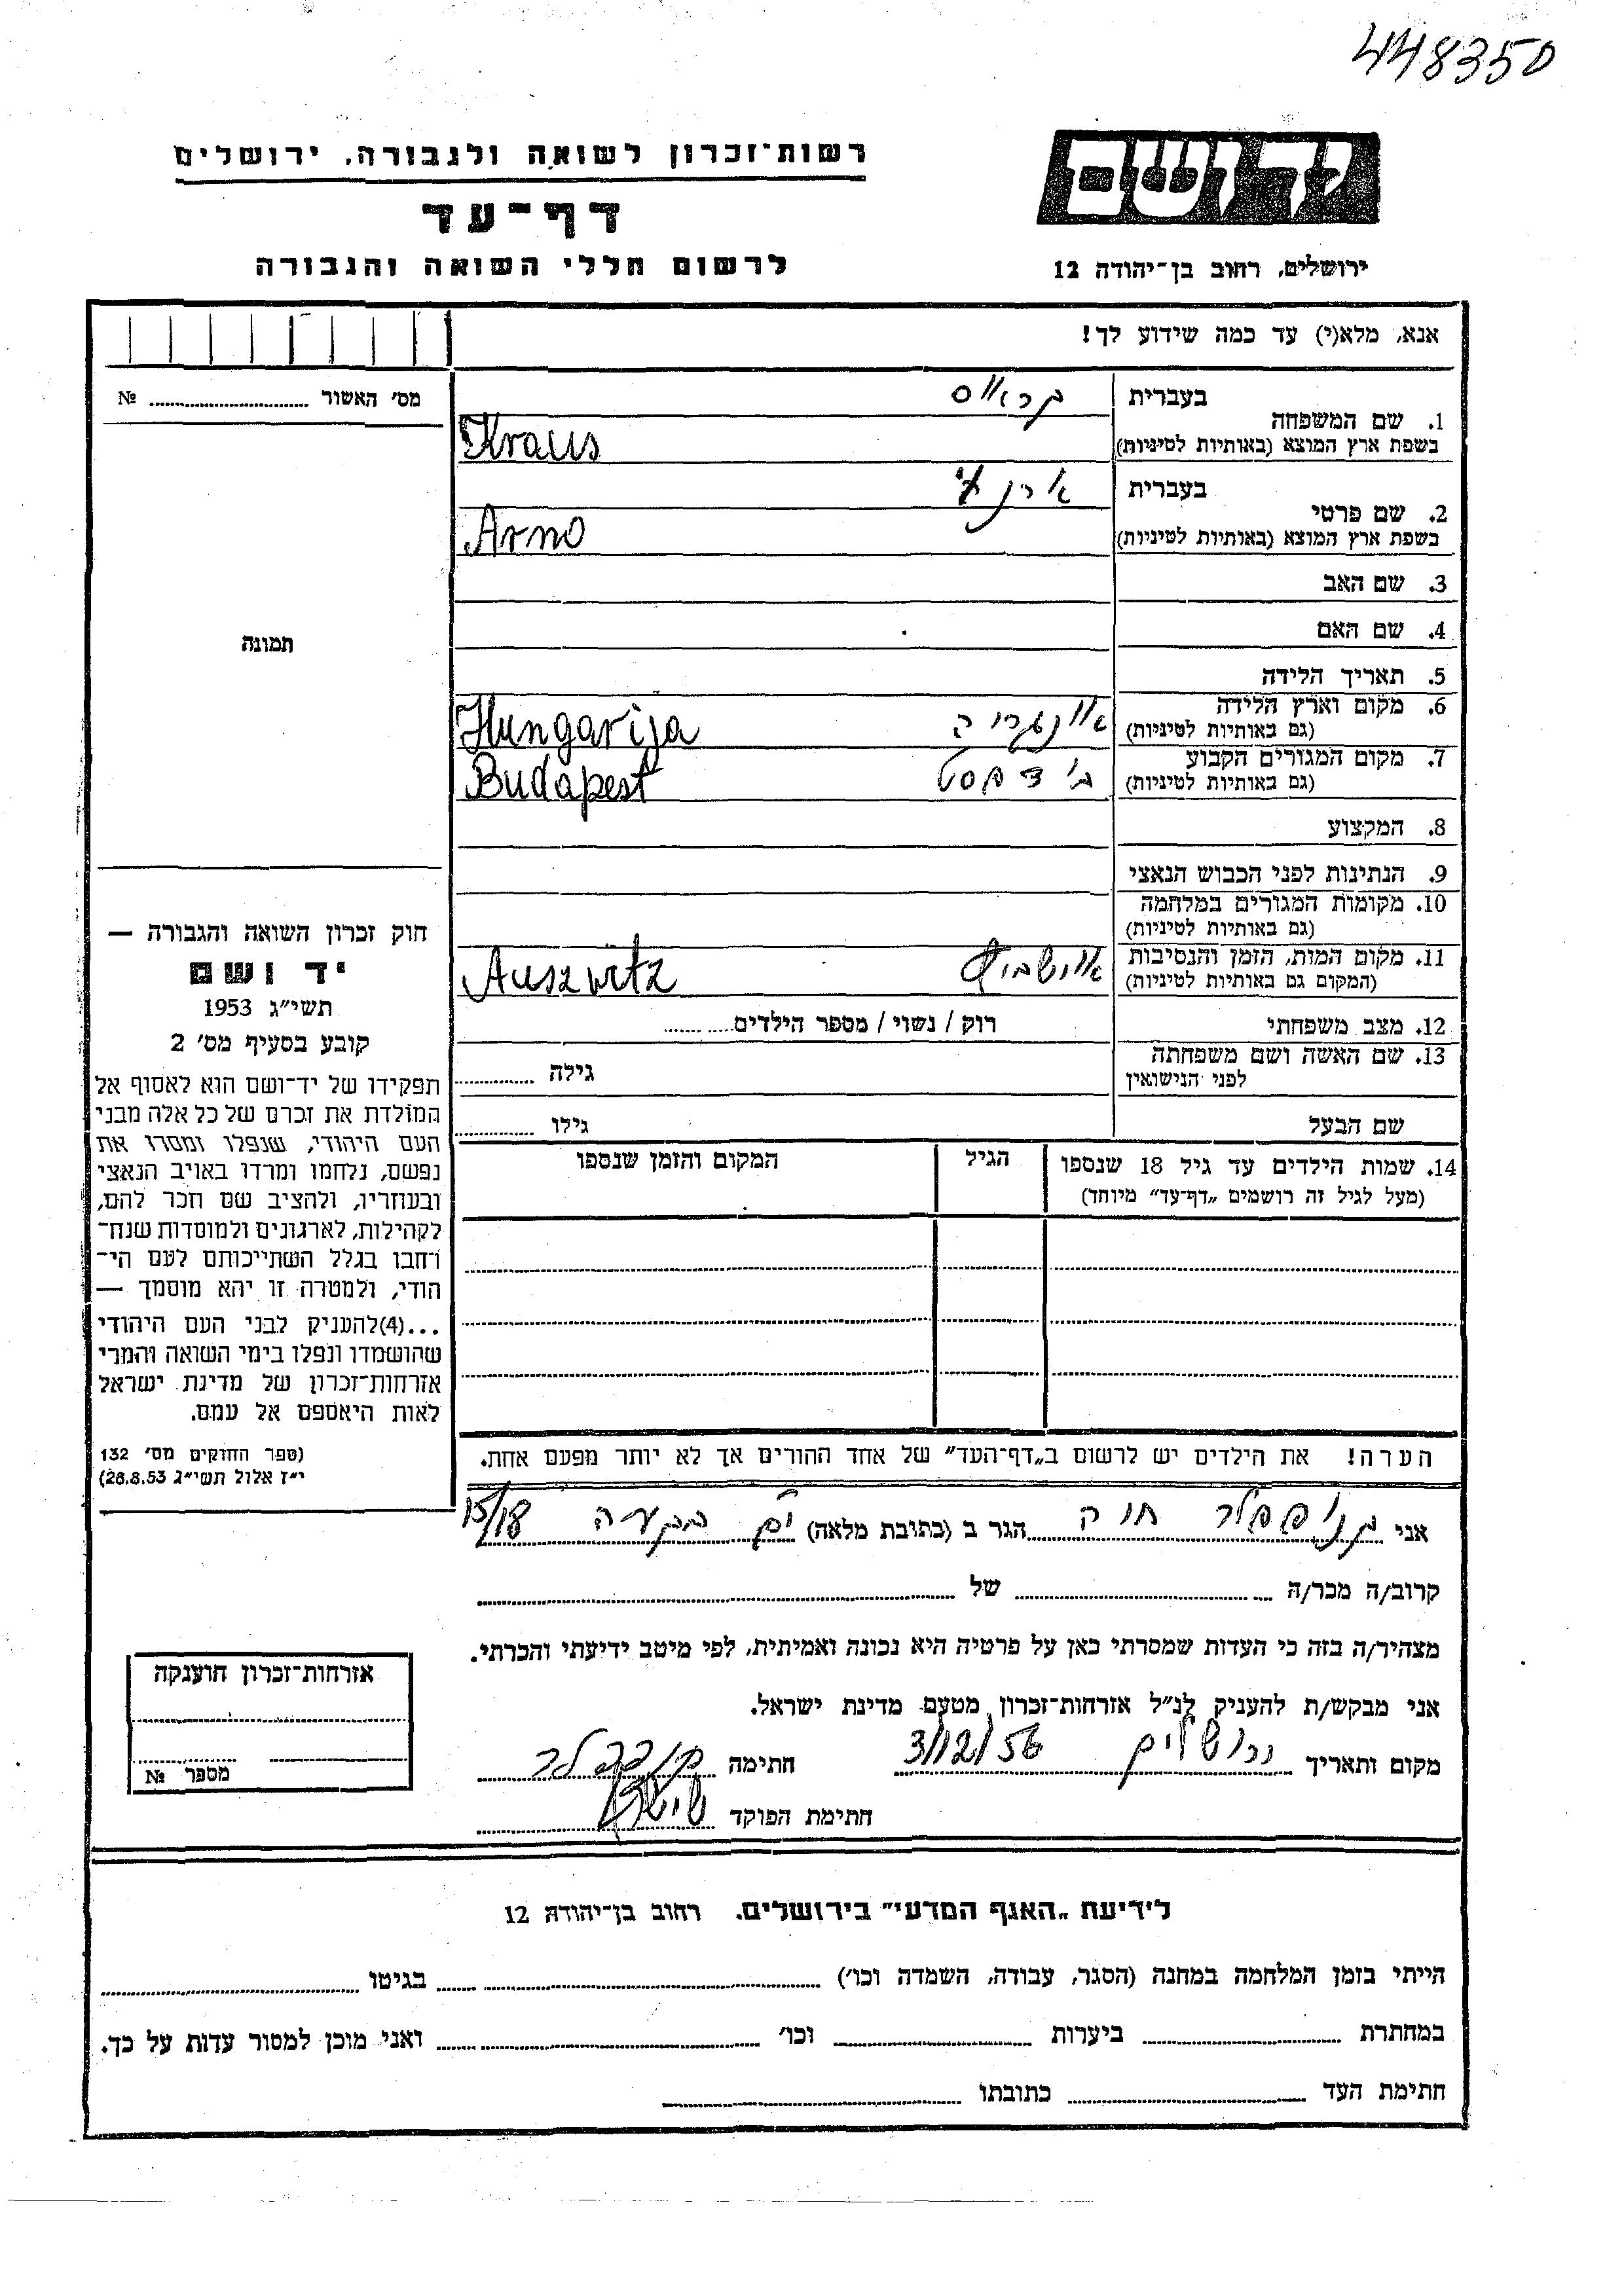 448350
יד ושם
רשות־זכרון לשואה ולגבורה, ירושלים
דף־עד
לרשום חללי השואה והגבורה
ירושלים, רחוב בן־יהודה 12
אנא, מלא(י) עד כמה שידוע לך!
מס׳ האשור № ........
בעברית קראוס
1. שם המשפחה
בשפת ארץ המוצא (באותיות לטיניות) Kraus
בעברית
2. שם פרטי
בשפת ארץ המוצא (באותיות לטיניות) Arno
3. שם האב
4. שם האם
תמונה
5. תאריך הלידה
6. מקום וארץ הלידה
(גם באותיות לטיניות) אונגריה Hungarija
7. מקום המגורים הקבוע
(גם באותיות לטיניות) בודפסט Budapest
8. המקצוע
9. הנתינות לפני הכבוש הנאצי
10. מקומות המגורים במלחמה
(גם באותיות לטיניות)
11. מקום המות, הזמן והנסיבות
(המקום גם באותיות לטיניות) אושביץ Auszwitz
12. מצב משפחתי רוק / נשוי / מספר הילדים........
13. שם האשה ושם משפחתה
לפני הנישואין גילה ........
שם הבעל גילו ........
14. שמות הילדים עד גיל 18 שנספו
(מעל לגיל זה רושמים „דף־עד״ מיוחד)
הגיל
המקום והזמן שנספו
חוק זכרון השואה והגבורה —
יד ושם
תשי״ג 1953
קובע בסעיף מס׳ 2
תפקידו של יד־ושם הוא לאסוף אל
המולדת את זכרם של כל אלה מבני
העם היהודי, שנפלו ומסרו את
נפשם, נלחמו ומרדו באויב הנאצי
ובעוזריו, ולהציב שם וזכר להם,
לקהילות, לארגונים ולמוסדות שנח־
רחבו בגלל השתייכותם לעם הי־
הודי, ולמטרה זו יהא מוסמך —
...(4)להעניק לבני העם היהודי
שהושמדו ונפלו בימי השואה והמרי
אזרחות־זכרון של מדינת ישראל
לאות היאספם אל עמם.
(ספר החוקים מס׳ 132
י״ז אלול תשי״ג 28.8.53)
הערה! את הילדים יש לרשום ב„דף־העד״ של אחד ההורים אך לא יותר מפעם אחת.
אני חוה הגר ב (כתובת מלאה) 15/18
קרוב/ה מכר/ה ........ של ........
מצהיר/ה בזה כי העדות שמסרתי כאן על פרטיה היא נכונה ואמיתית, לפי מיטב ידיעתי והכרתי.
אני מבקש/ת להעניק לנ״ל אזרחות־זכרון מטעם מדינת ישראל.
מקום ותאריך ירושלים 3/12/56 חתימה
חתימת הפוקד
אזרחות־זכרון הוענקה
מספר №
לידיעת „האגף המדעי״ בירושלים, רחוב בן־יהודה 12
הייתי בזמן המלחמה במחנה (הסגר, עבודה, השמדה וכו׳) ........ בגיטו ........
במחתרת ........ ביערות ........ וכו׳ ........ ואני מוכן למסור עדות על כך.
חתימת העד ........ כתובתו ........